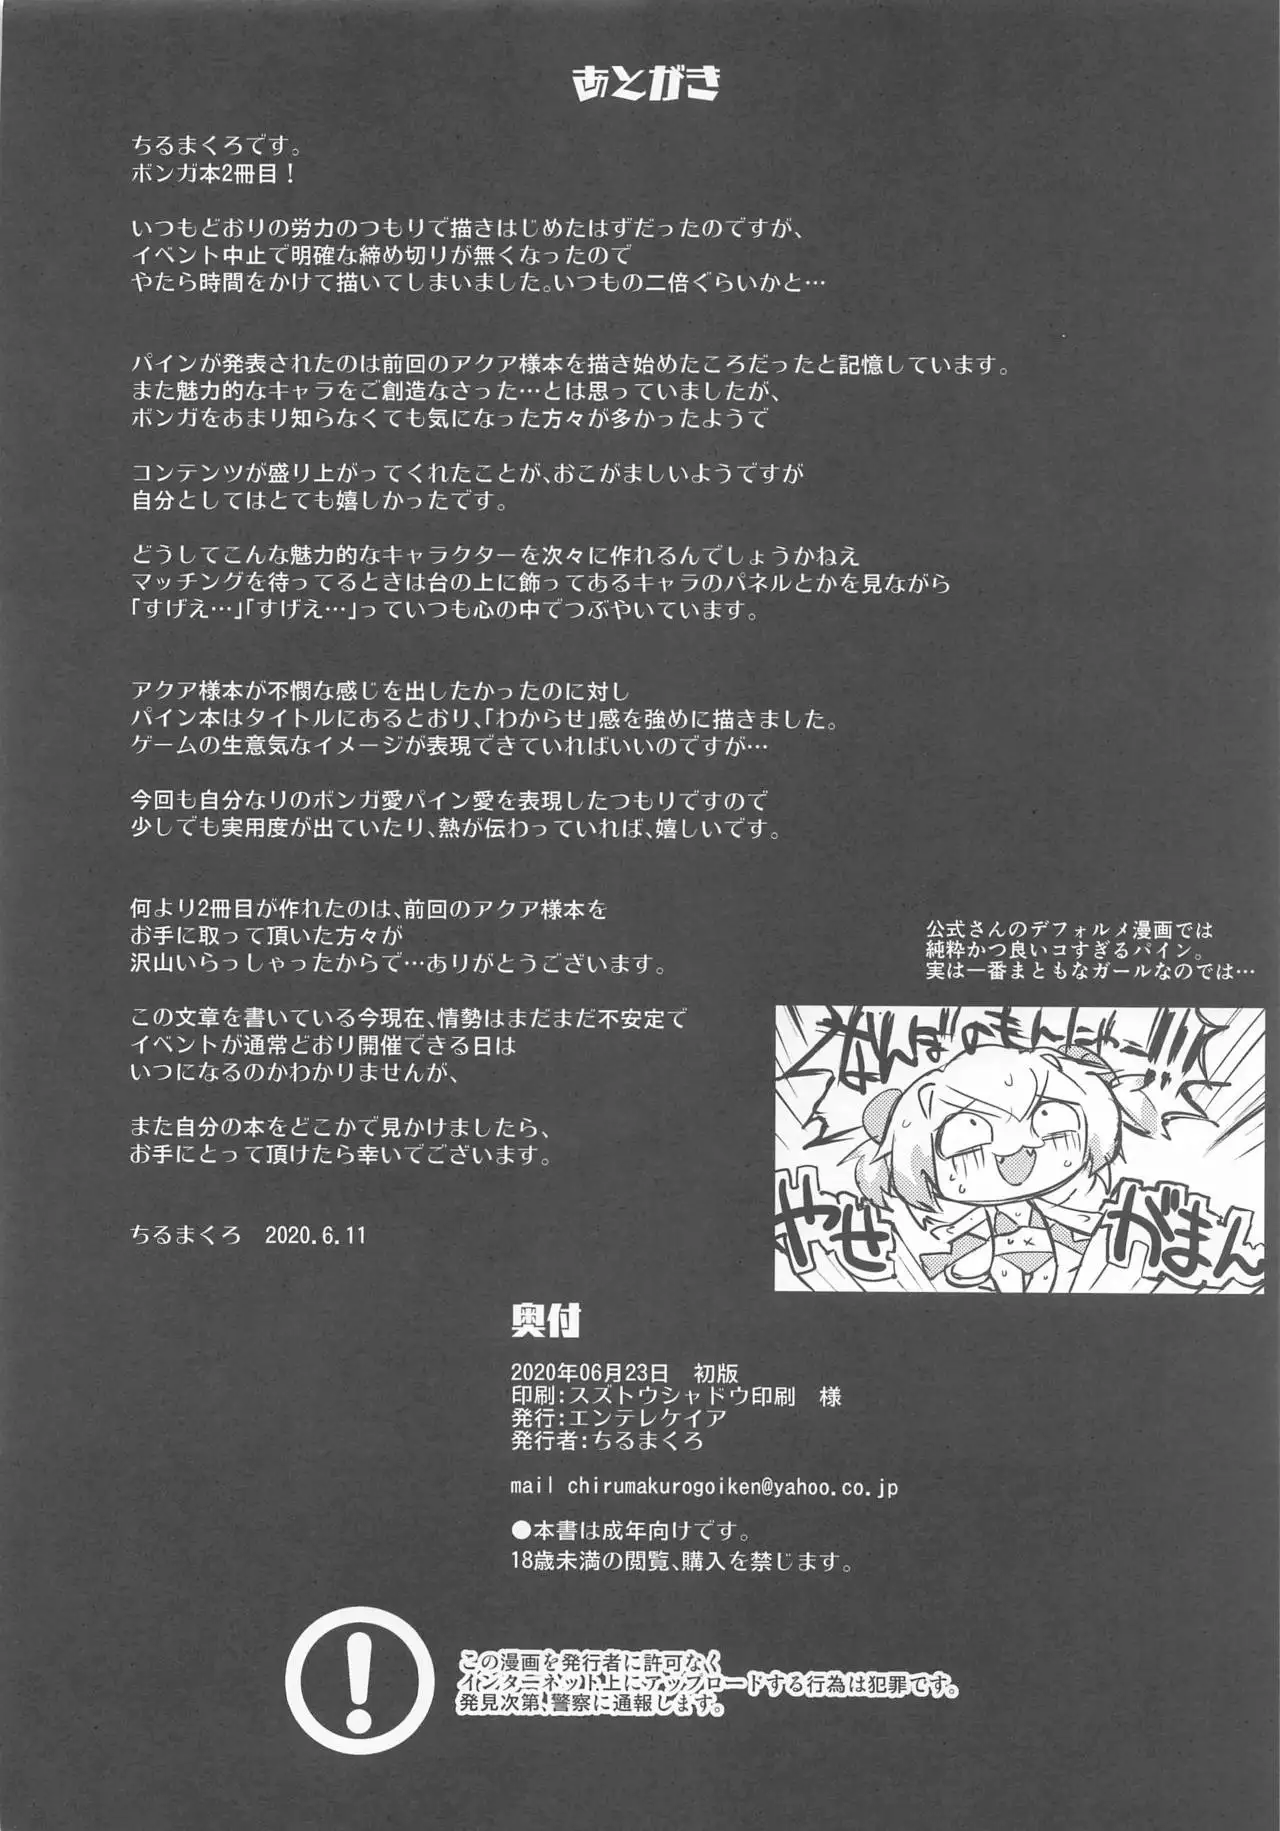 あとがき
ちるまくろです。
ボンガ本2冊目！
いつもどおりの労力のつもりで描きはじめたはずだったのですが、
イベント中止で明確な締め切りが無くなったので
やたら時間をかけて描いてしまいました。いつもの二倍ぐらいかと…
パインが発表されたのは前回のアクア様本を描き始めたころだったと記憶しています。
また魅力的なキャラをご創造なさった…とは思っていましたが、
ボンガをあまり知らなくても気になった方々が多かったようで
コンテンツが盛り上がってくれたことが、おこがましいようですが
自分としてはとても嬉しかったです。
どうしてこんな魅力的なキャラクターを次々に作れるんでしょうかねえ
マッチングを待ってるときは台の上に飾ってあるキャラのパネルとかを見ながら
「すげえ…」「すげえ…」っていつも心の中でつぶやいています。
アクア様本が不憫な感じを出したかったのに対し
パイン本はタイトルにあるとおり、「わからせ」感を強めに描きました。
ゲームの生意気なイメージが表現できていればいいのですが…
今回も自分なりのボンガ愛パイン愛を表現したつもりですので
少しでも実用度が出ていたり、熱が伝わっていれば、嬉しいです。
何より2冊目が作れたのは、前回のアクア様本を
お手に取って頂いた方々が
沢山いらっしゃったからで…ありがとうございます。
この文章を書いている今現在、情勢はまだまだ不安定で
イベントが通常どおり開催できる日は
いつになるのかわかりませんが、
また自分の本をどこかで見かけましたら、
お手にとって頂けたら幸いでございます。
ちるまくろ　2020.6.11
公式さんのデフォルメ漫画では
純粋かつ良いコすぎるパイン。
実は一番まともなガールなのでは…
なんばのもんにゃー!!!
やせ
がまん
奥付
2020年06月23日　初版
印刷：スズトウシャドウ印刷　様
発行：エンテレケイア
発行者：ちるまくろ
mail chirumakurogoiken@yahoo.co.jp
●本書は成年向けです。
18歳未満の閲覧、購入を禁じます。
この漫画を発行者に許可なく
インターネット上にアップロードする行為は犯罪です。
発見次第、警察に通報します。